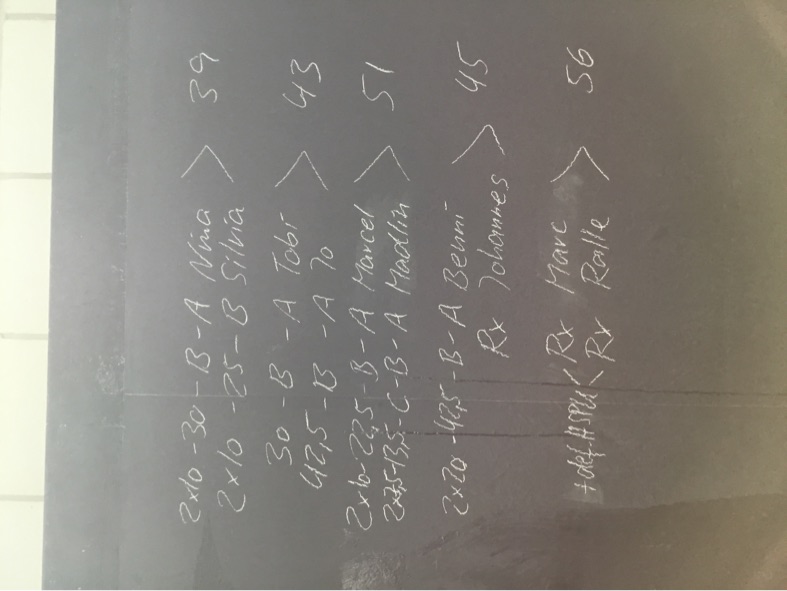 2x10 - 30 - B - A Nina > 39
2x10 - 25 - B Silvia
30 - B - A Tobi > 43
42,5 - B - A Jo
2x10 - 22,5 - B - A Marcel > 51
2x7,5-13,5 - C - B - A Madlin
2x20 - 42,5 - B - A Benni > 45
Rx Johannes
< Rx Marc > 56
< Rx Ralle